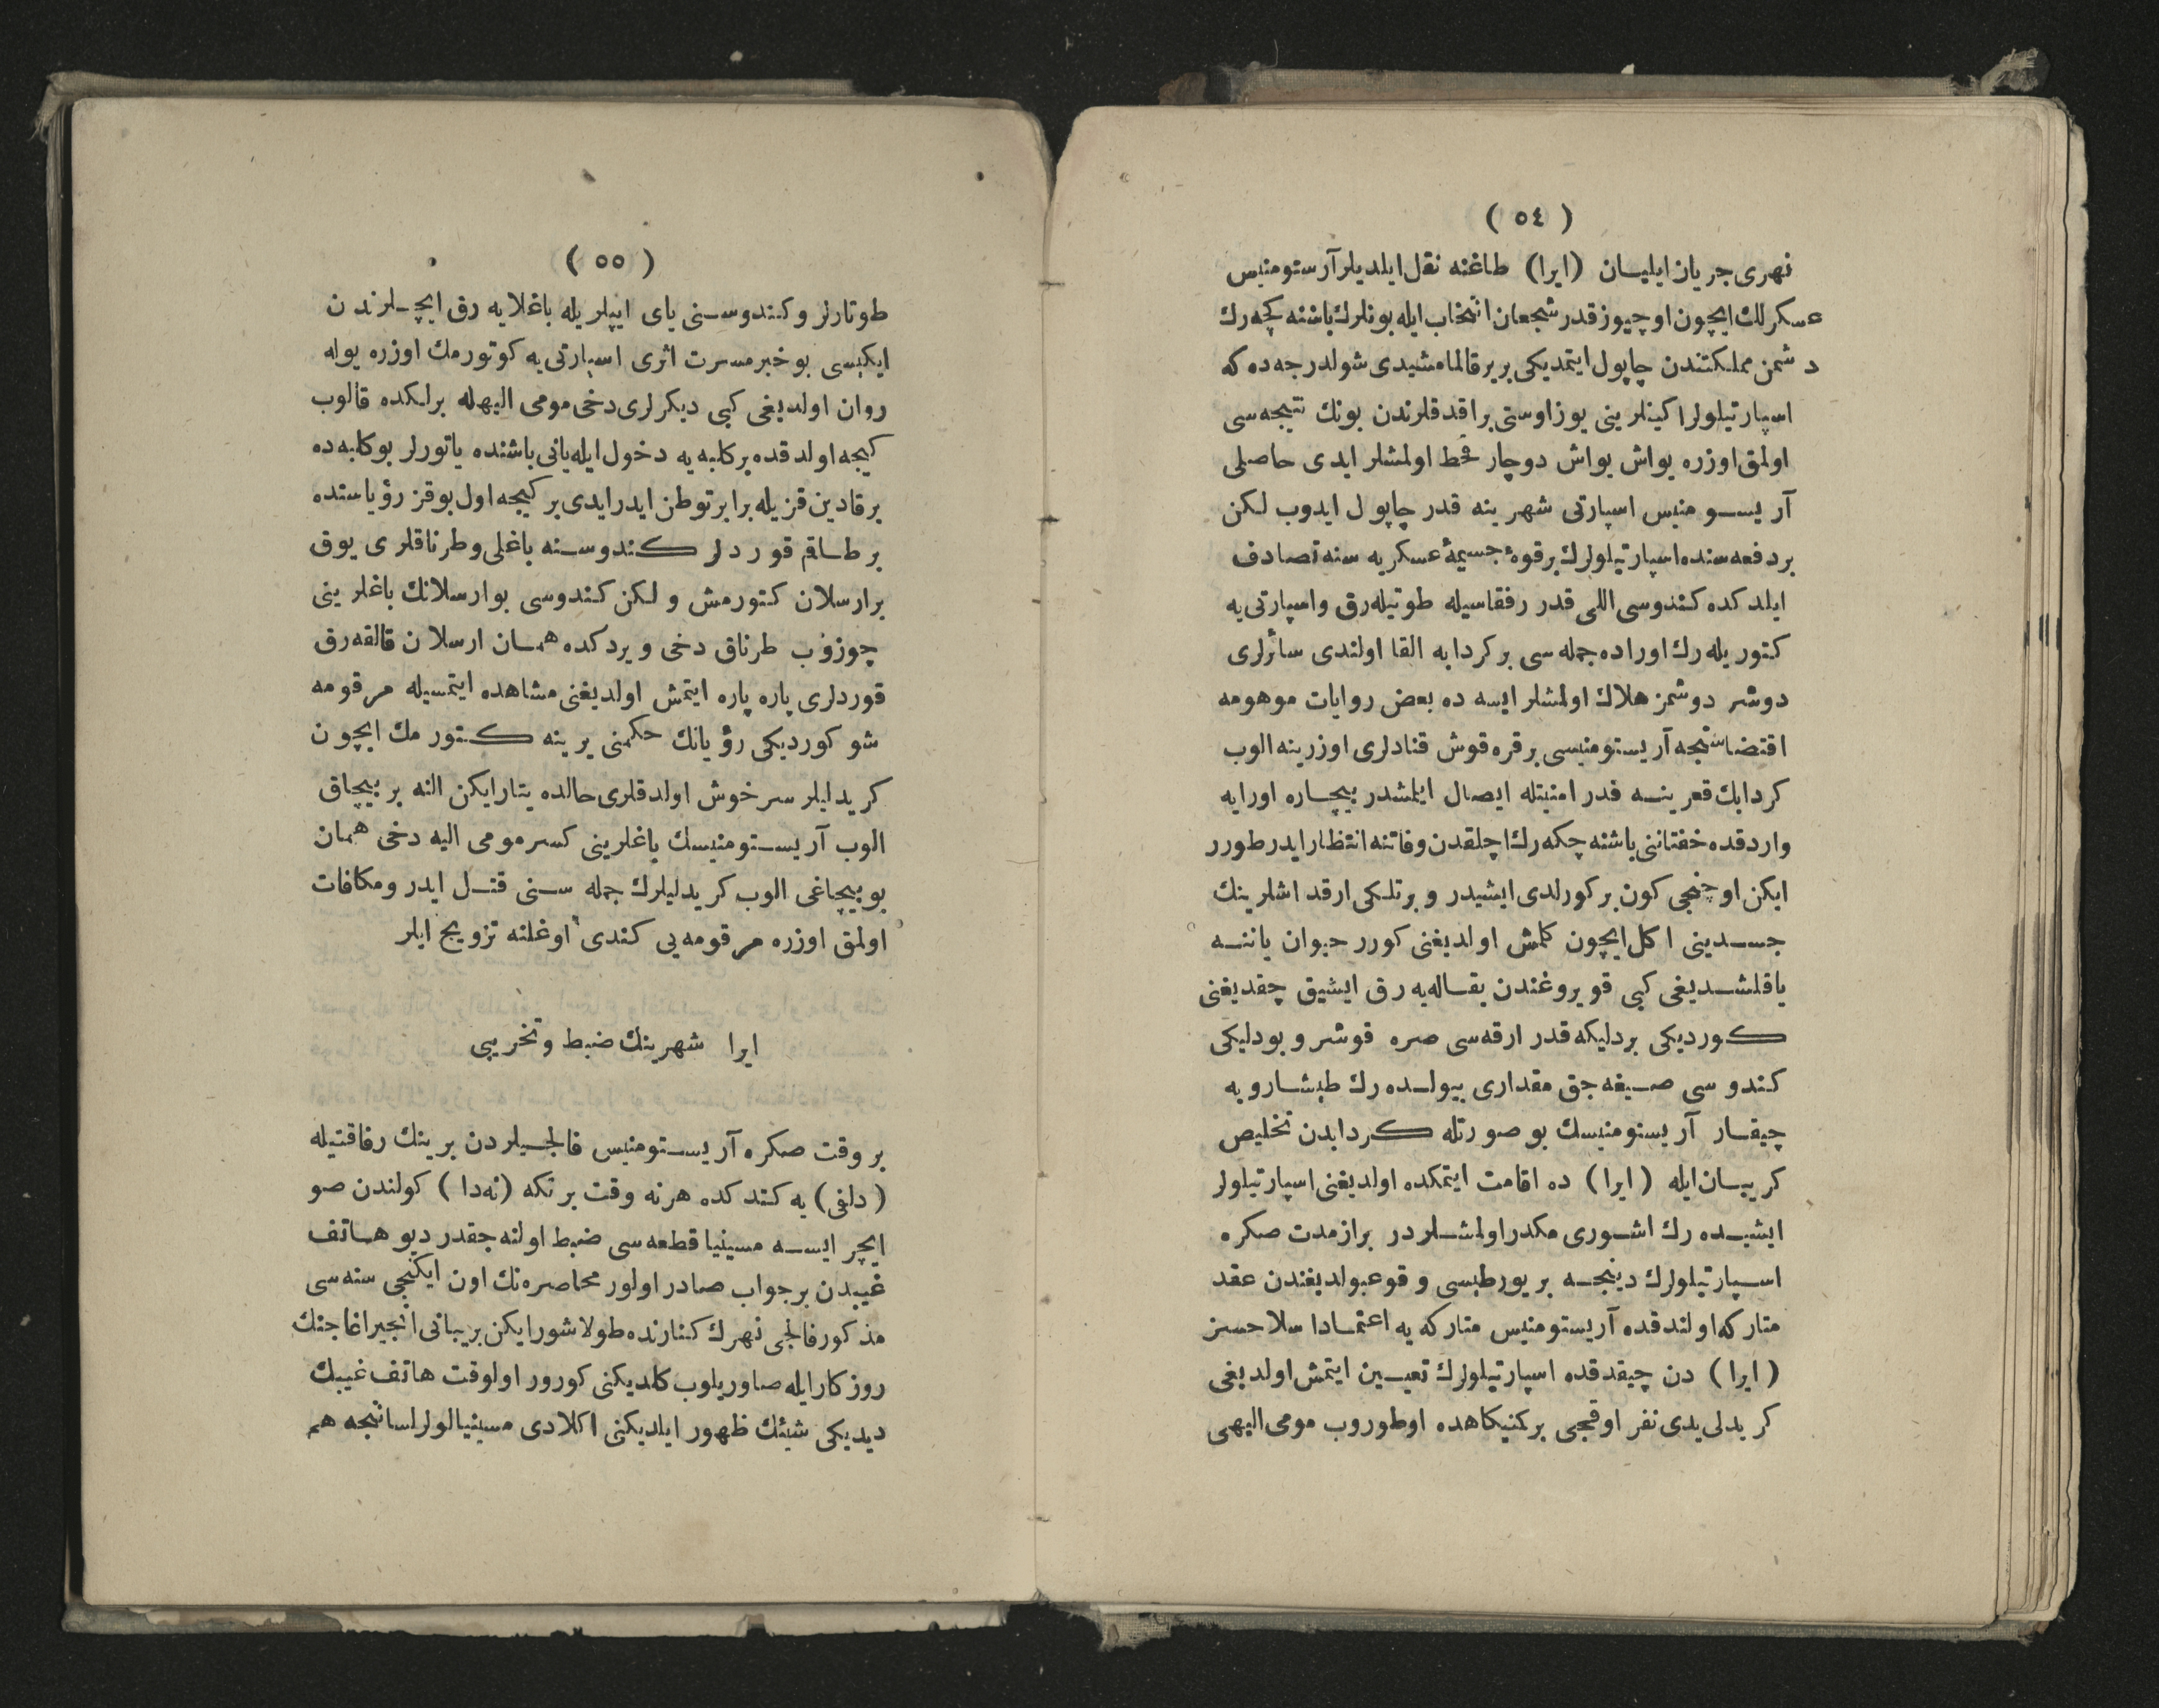 ( ٥٤ )
نهری جریان ایلیان (ایرا) طاغنه نقل ایلدیلر آرستومنیس
عسكرلك ایچون اوچیوز قدر شجعان انتخاب ایله بونلرك باشنه كچه رك
دشمن مملكتندن چاپول ایتمدیكی بریر قالمامشیدی شولدرجه ده كه
اسپارتیلولر اكینلرینی یوز اوستی براقدقلرندن بونك نتیجه سی
اولمق اوزره یواش یواش دوچار قحط اولمشلر ایدی حاصلی
آریستومنیس اسپارتی شهرینه قدر چاپول ایدوب لكن
بردفعه سنده اسپارتیلولرك برقوهٔ جسیمهٔ عسكریه سنه تصادف
ایلدكده كندوسی اللی قدر رفقاسیله طوتیله رق واسپارتی یه
كتوریله رك اوراده جمله سی بركردابه القا اولندی سائرلری
دوشر دوشمز هلاك اولمشلر ایسه ده بعض روایات موهومه
اقتضاسنجه آریستومنیسی برقره قوش قنادلری اوزرینه الوب
كردابك قعرینه قدر امنیتله ایصال ایلمشدر بیچاره اورایه
واردقده خفتاننی باشنه چكه رك اچلقدن وفاتنه انتظار ایدر طورر
ایكن اوچنجی كون بركورلدی ایشیدر و برتلكی ارقداشلرینك
جسدینی اكل ایچون كلمش اولدیغنی كورر حیوان یاننه
یاقلشدیغی كبی قویروغندن یقاله یه رق ایشیق چقدیغنی
كوردیكی بردلیكه قدر ارقه سی صره قوشر و بودلیكی
كندوسی صیغه جق مقداری بیولده رك طیشارویه
چیقار آریستومنیسك بوصورتله كردابدن تخلیص
كریبان ایله (ایرا) ده اقامت ایتمكده اولدیغنی اسپارتیلولر
ایشیده رك اشوری مكدر اولمشلردر برازمدت صكره
اسپارتیلولرك دینجه بریورطیسی وقوعبولدیغندن عقد
متاركه اولندقده آریستومنیس متاركه یه اعتمادا سلاحسز
(ایرا) دن چیقدقده اسپارتیلولرك تعیین ایتمش اولدیغی
كریدلی یدی نفر اوقجی بركمینكاهده اوطوروب مومی الیهی
( ٥٥ )
طوتارلر وكندوسنی یای ایپلریله باغلایه رق ایچلرندن
ایكیسی بوخبر مسرت اثری اسپارتی یه كوتورمك اوزره یوله
روان اولدیغی كبی دیكرلری دخی مومی الیهله برلكده قالوب
كیجه اولدقده بركلبه یه دخول ایله یانی باشنده یاتورلر بوكلبه ده
برقادین قزیله برابر توطن ایدر ایدی بركیجه اول بوقز رؤیاسنده
برطاقم قوردلر كندوسنه باغلی وطرناقلری یوق
برارسلان كتورمش ولكن كندوسی بوارسلانك باغلرینی
چوزوب طرناق دخی ویردكده همان ارسلان قالقه رق
قوردلری پاره پاره ایتمش اولدیغنی مشاهده ایتمسیله مرقومه
شو كوردیكی رؤیانك حكمنی یرینه كتورمك ایچون
كریدلیلر سرخوش اولدقلری حالده یتارایكن النه بر بیچاق
الوب آریستومنیسك باغلرینی كسر مومی الیه دخی همان
بوبیچاغی الوب كریدلیلرك جمله سنی قتل ایدر ومكافات
اولمق اوزره مرقومه یی كندی اوغلنه تزویج ایلر
ایرا شهرینك ضبط وتخریبی
بر وقت صكره آریستومنیس فالجیلردن برینك رفاقتیله
(دلفی) یه كتدكده هرنه وقت برتكه (نه دا) كولندن صو
ایچر ایسه مسینیا قطعه سی ضبط اولنه جقدر دیو هاتف
غیبدن برجواب صادر اولور محاصره نك اون ایكنجی سنه سی
مذكور فالجی نهرك كنارنده طولاشور ایكن بریبانی انجیر اغاجنك
روزكار ایله صاوریلوب كلدیكنی كورور اولوقت هاتف غیبك
دیدیكی شیئك ظهور ایلدیكنی اكلادی مسینیالولر لسانجه هم